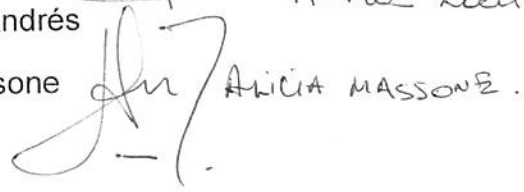 ndrés
sone ALICIA MASSONE.